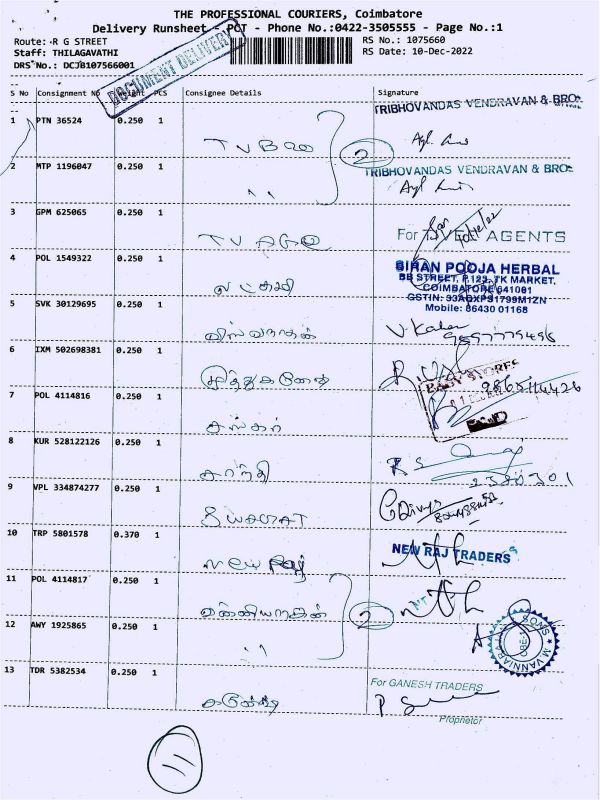 THE PROFESSIONAL COURIERS, Coimbatore
Delivery Runsheet - PCT - Phone No.:0422-3505555 - Page No.:1
Route: R G STREET
RS No.: 1075660
Staff: THILAGAVATHI
RS Date: 10-Dec-2022
DRS No.: DCJ8107566001
DOCUMENT DELIVERY
S No Consignment No Weight PCS Consignee Details Signature
TRIBHOVANDAS VENDRAVAN & BRO
1 PTN 36524 0.250 1 TVBRO
2
2 MTP 1196047 0.250 1 ''
TRIBHOVANDAS VENDRAVAN & BRO
3 GPM 625065 0.250 1 TV AGE
For TVEE AGENTS
10/12/22
4 POL 1549322 0.250 1 லட்சுமி
SIRAN POOJA HERBAL
BB STREET, P.123, TK MARKET,
COIMBATORE 641001
Mobile: 86430 01168
5 SVK 30129695 0.250 1 விஸ்வநாதன்
V. Kala
6 IXM 502698381 0.250 1
9865114426
BABY STORES
7 POL 4114816 0.250 1 சங்கர்
8 KUR 528122126 0.250 1 சாந்தி
9 VPL 334874277 0.250 1
10 TRP 5801578 0.370 1 New Raj
NEW RAJ TRADERS
11 POL 4114817 0.250 1
2
12 AWY 1925865 0.250 1 ''
13 TDR 5382534 0.250 1 கணேஷ்
For GANESH TRADERS
Proprietor